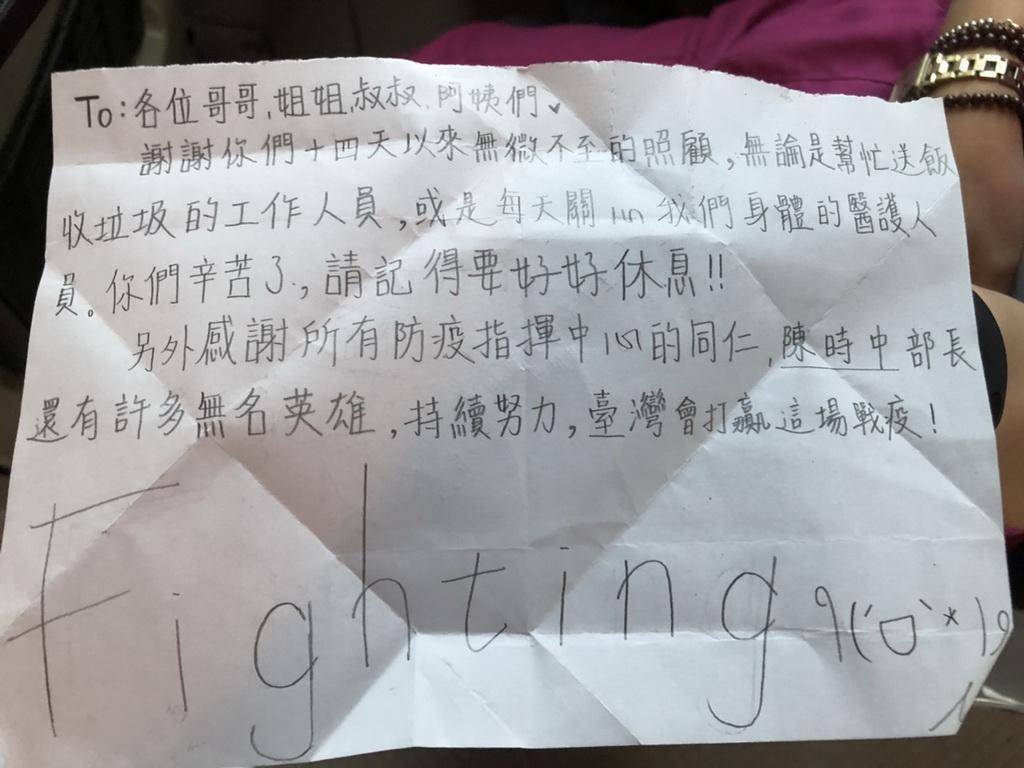 To:各位哥哥,姐姐,叔叔,阿姨們
謝謝你們十四天以來無微不至的照顧,無論是幫忙送飯
收垃圾的工作人員,或是每天關心我們身體的醫護人
員。你們辛苦了,請記得要好好休息!!
另外感謝所有防疫指揮中心的同仁,陳時中部長
還有許多無名英雄,持續努力,臺灣會打贏這場戰疫!
Fighting ٩(ˊロˋ*)و